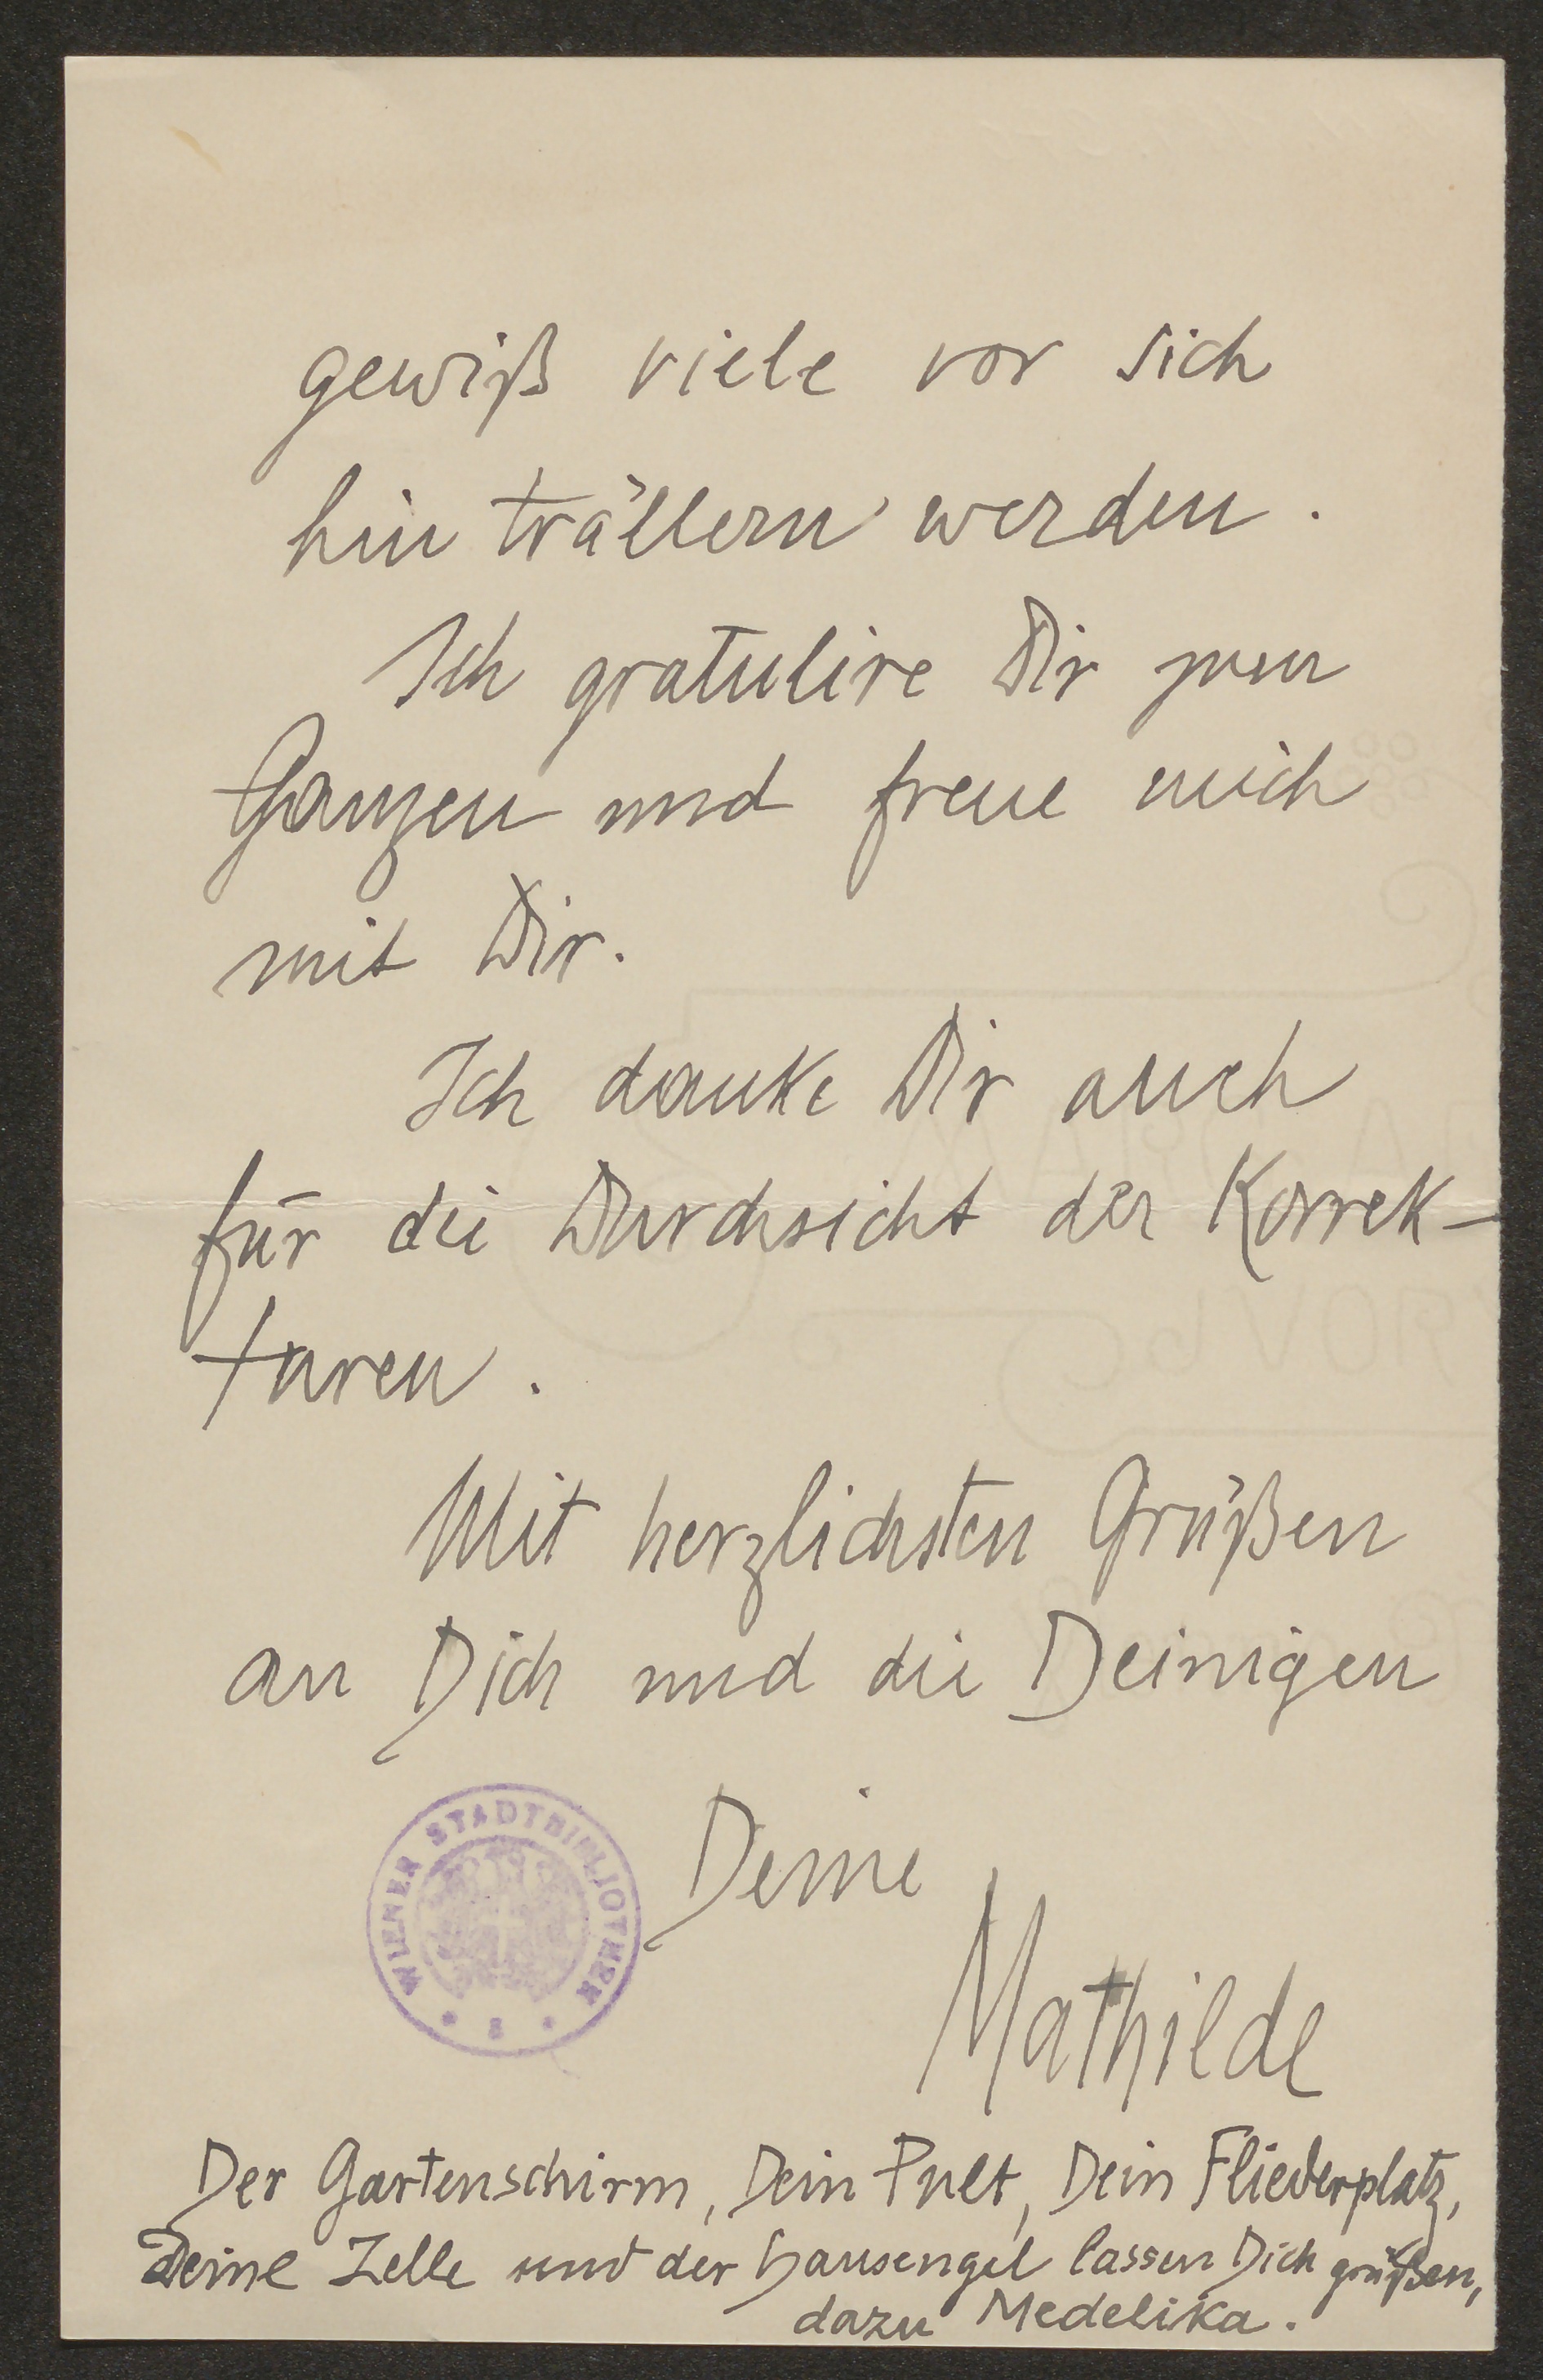 gewiß viele vor sich
hin trällern werden.
Ich gratulire Dir zum
Ganzen und freue mich
mit Dir.
Ich danke Dir auch
für die Durchsicht der Korrek-
turen.
Mit herzlichsten Grüßen
an Dich und die Deinigen
Deine
WIENER STADTBIBLIOTHEK
Mathilde
Der Gartenschirm, Dein Pult, Dein Fliederplatz,
Deine Zelle und der Hausengel lassen Dich grüßen,
dazu Medelika.